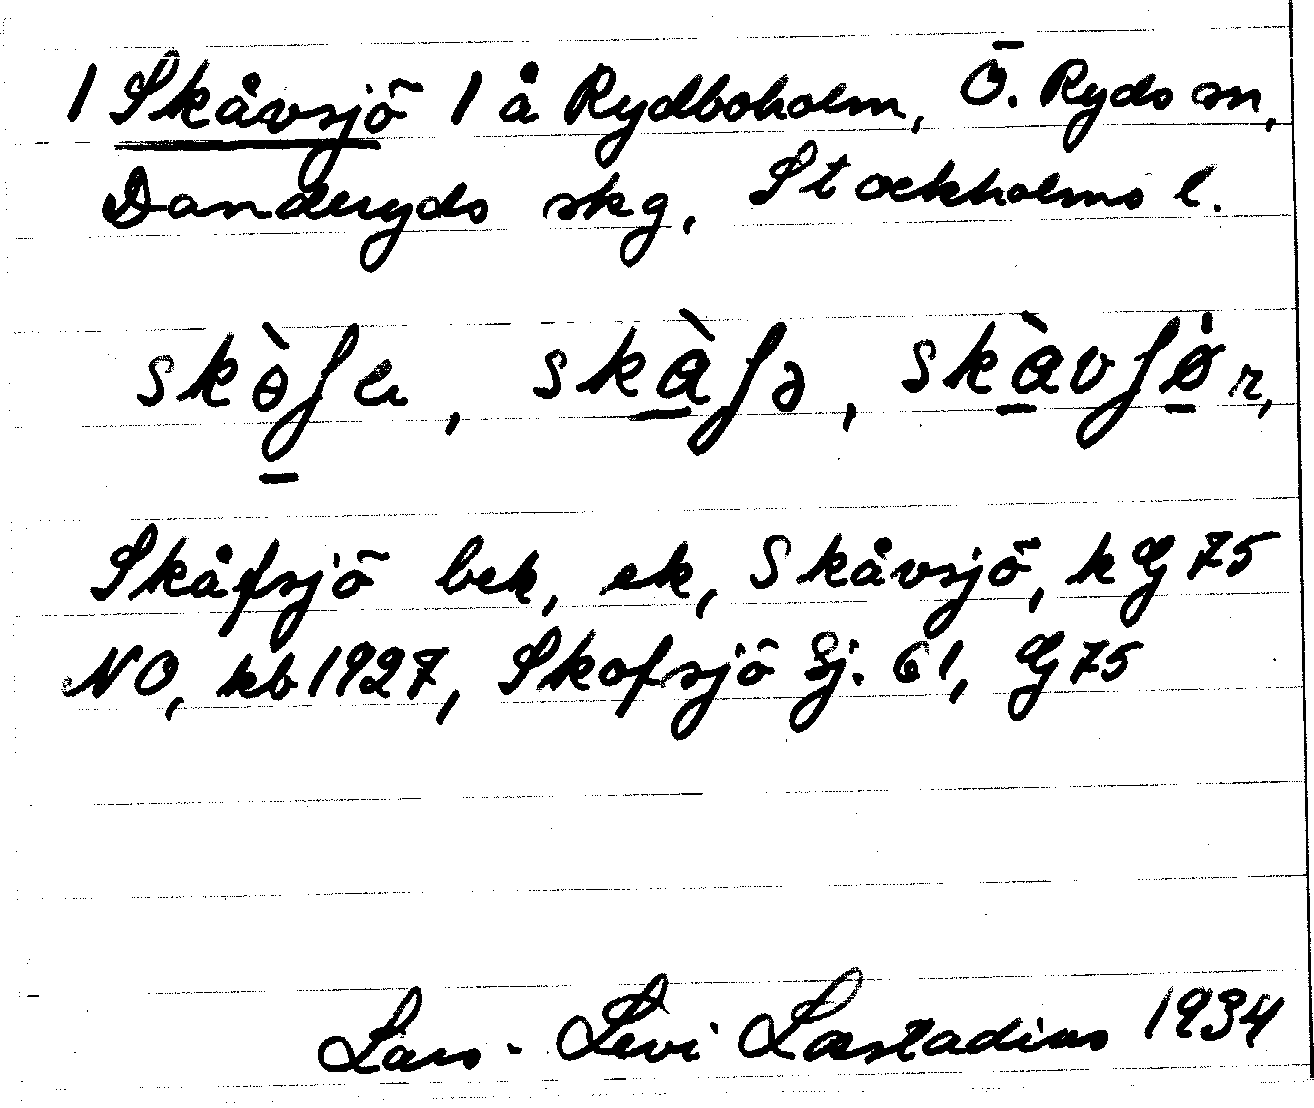 1 Skåvsjö 1 å Rydboholm, Ö. Ryds sn,
Danderyds skg, Stockholms l.
skò̱ʃɐ, skà̱ʃə, skà̱vʃø̱r,
Skåfsjö bek, ek, Skåvsjö, kG 75
NO, kb 1927, Skofsjö Sj. 61, G 75
Lars-Levi Læstadius 1934